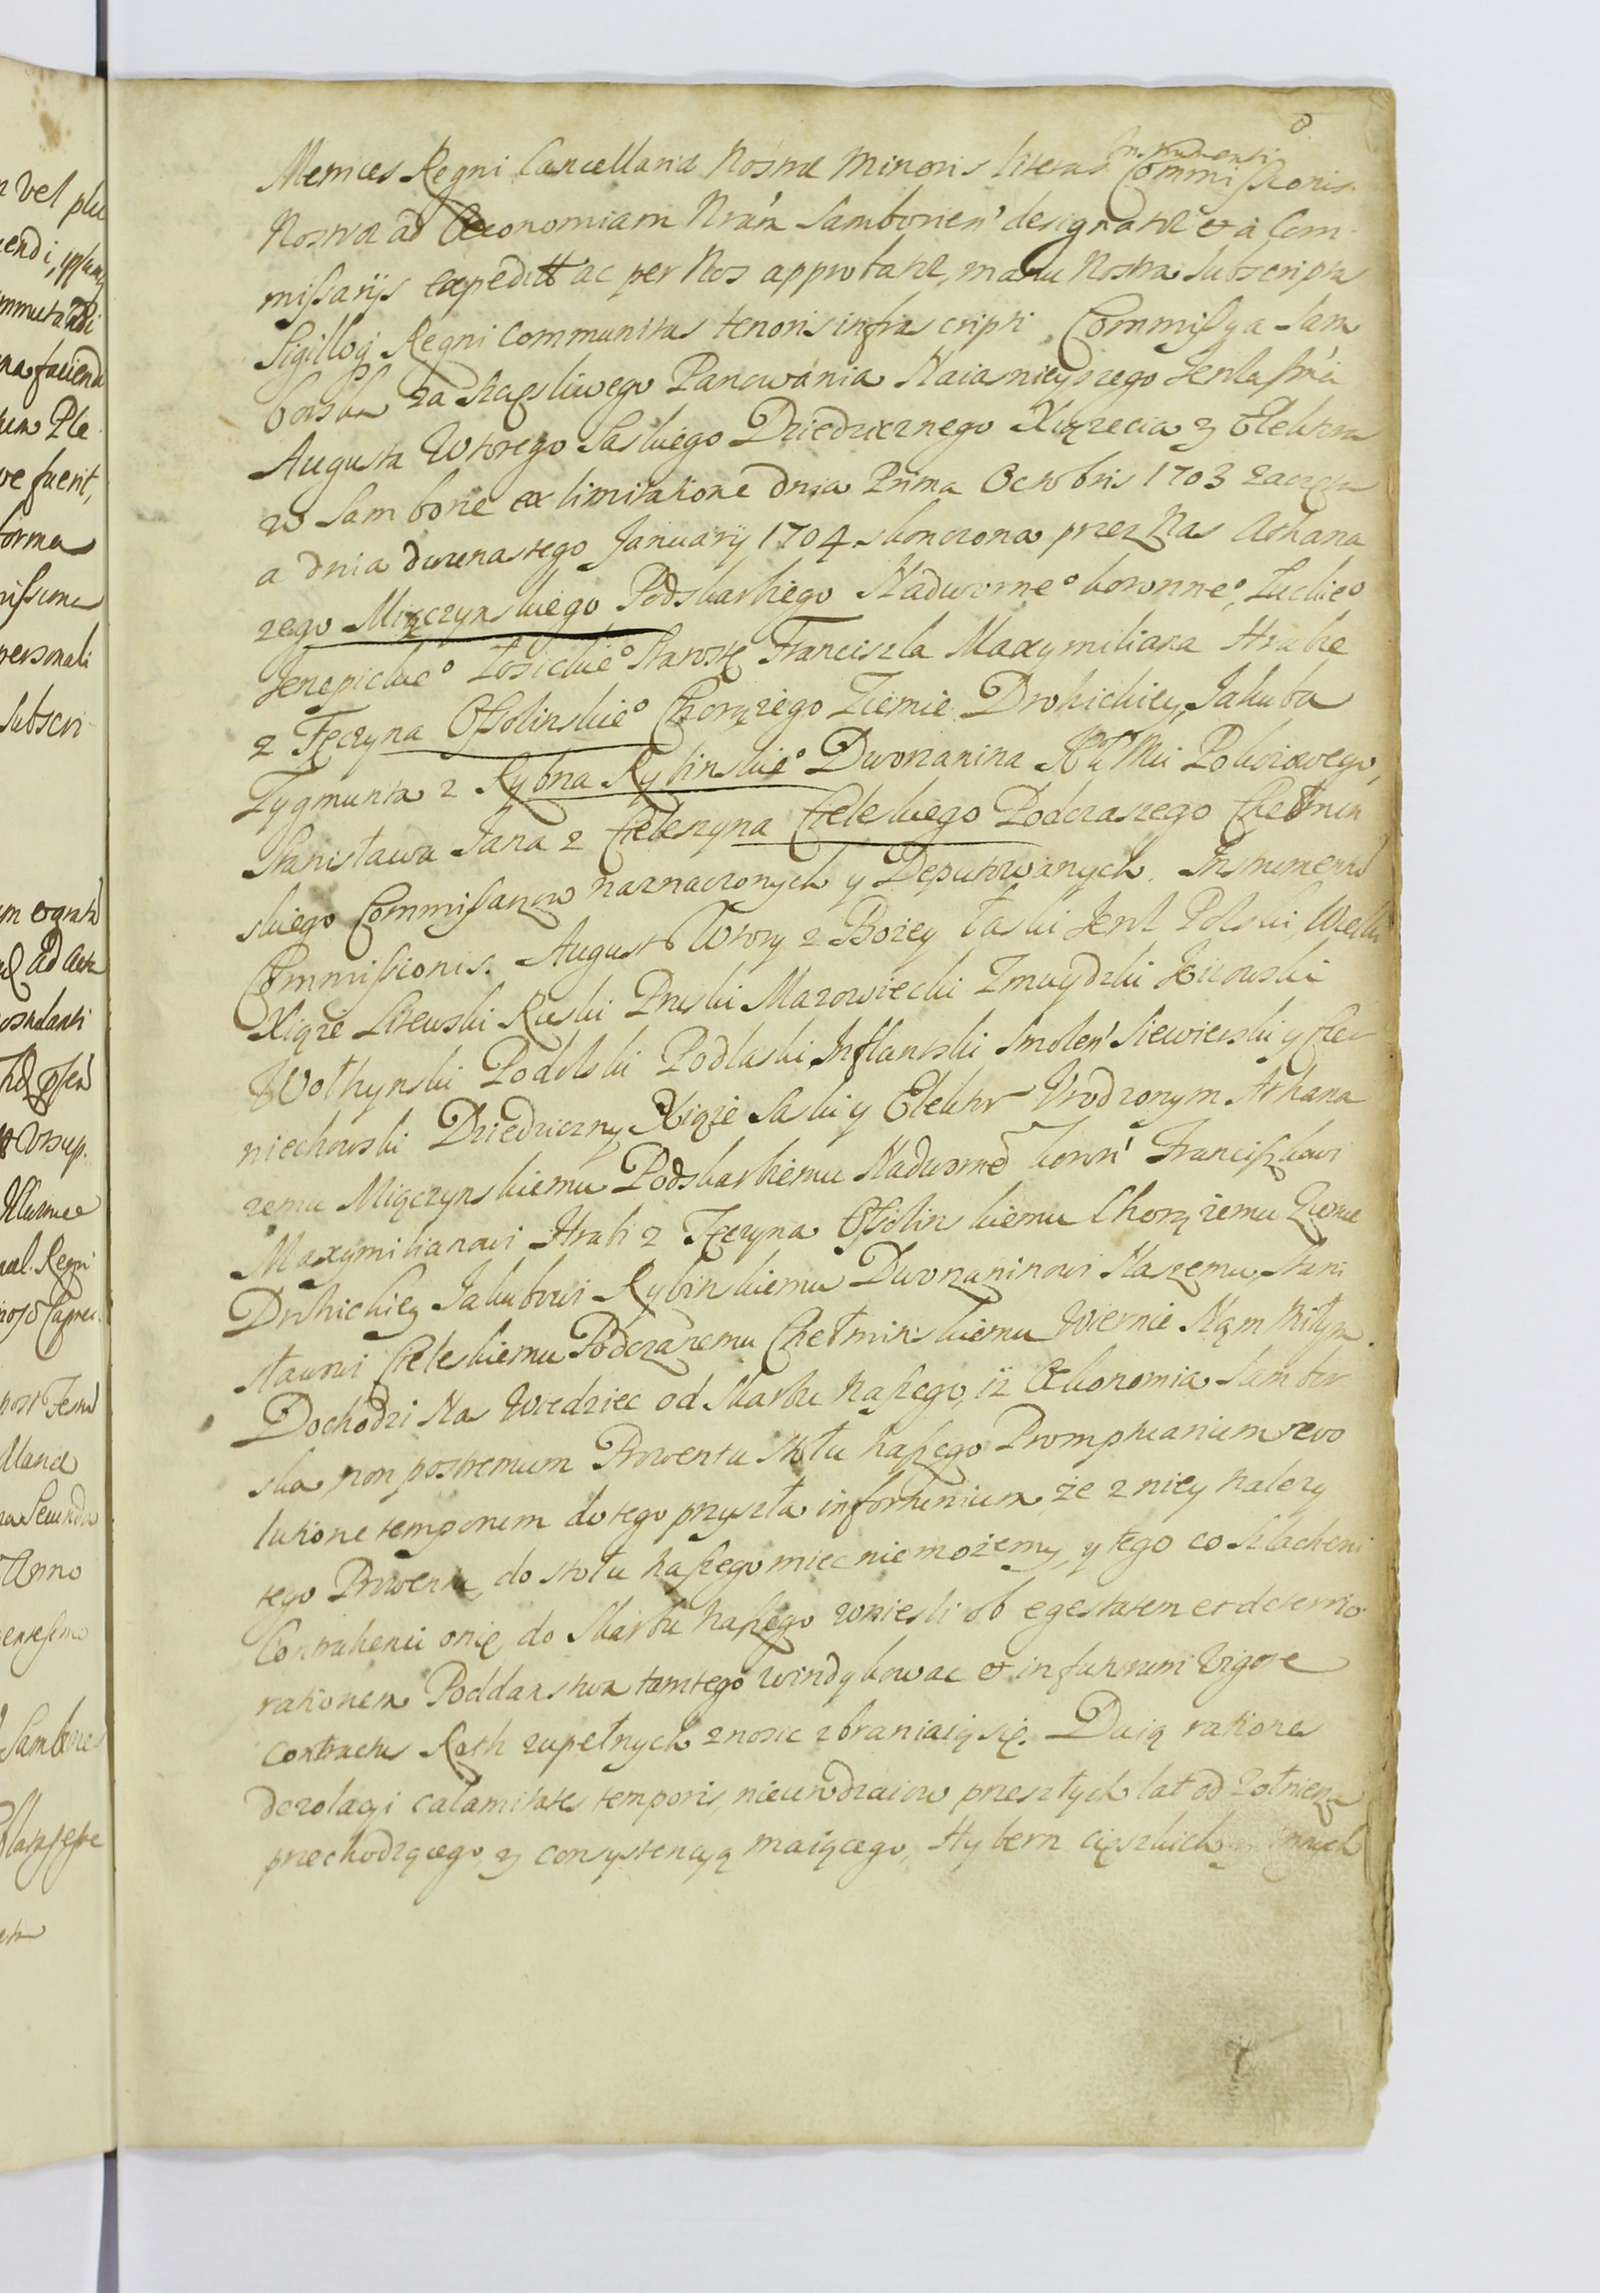 Metrices Regni Cancellariæ Nostræ Minoris literas Instrumenti Commissionis
Nostræ ad Oeconomiam Nrãm Samborien' designatæ et à Com-
missarijs expeditæ ac per Nos approbatæ, manu Nostra subscriptas
Sigilloq Regni communitas tenoris infrascripti. Commissya Sam
borska za szczęsliwego Panowánia Naiasnieyszego Krola
Augusta Wtorego Saskiego Dziedzicznego Xiązecia y Elektora
w Samborze ex limitatione dnia Prima Octobris 1703 zaczęta
a dnia dwunastego January 1704 skonczona przez Nas Athana
zego Miączynskiego Podskarbiego Nadworneº koronneº, Luckieº
Łosickieº Starostę Franciszka Maxymiliana Hrabę
z Tęczyna Ossolinskieº Chorązego Ziemie Drohickiey, Jakuba
Zygmunta z Rybna Rybinskieº Dworzanina Pokoiowego,
Stanisława Jana z Cieleszyna Cieleskiego Podczaszego Chełmin
skiego Commissarzow naznaczonych y Deputowanych. Instrument
Commissionis. August Wtory z Bozey łaski Krol Polski, Wielki
Xiąze Litewski Ruski Pruski Mazowiecki Zmuydzki Kiiowski
Wołhynski Podolski Podlaski Inflantski Smolen' Siewierski y Czer
niechowski Dziedziczny Xiąże Saski y Elektor Urodzonym Athana
zemu Miączynskiemu Podskarbiemu Nadwornẽ koron' Franciszkowi
Maxymilianowi Hrabi z Tęczyna Ossolinskiemu Chorązemu Ziemie
Drohickiey Jakubowi Rybinskiemu Dworzaninowi Naszemu, Stani
sławowi Cieleskiemu Podczaszemu Chełminskiemu Wiernie Nam Miłym.
Dochodzi Nas Wiedziec od Skarbu naszego, iz Oekonomia Sambor
ska non postremum Prowentu stołu naszego Promptuarium revo
lutione temporum do tego przyszła infortunium, że z niey nalezy
tego Prowentu do stołu naszego miec nie możemy, y tego co szlachetni
Contrahenci oney do Skarbu naszego wniesli ob egestatem et deterio
rationem Poddanstwa tamtego windykowac et in futurum vigore
contractus Rath zupełnych znosic zbraniaią się. Daią ratione
dezolacyi calamitates temporis, nieurodzaiow przeszłych lat od zołnierza
przechodzącego y consystencyą maiącego, Hybern cięszkich innych